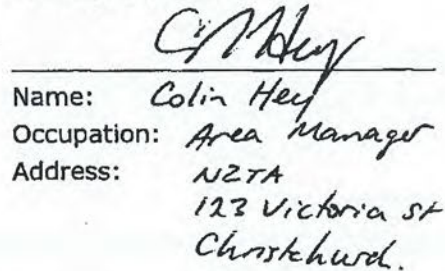 CM Hey
Name: Colin Hey
Occupation: Area Manager
Address: NZTA
123 Victoria St
Christchurch.